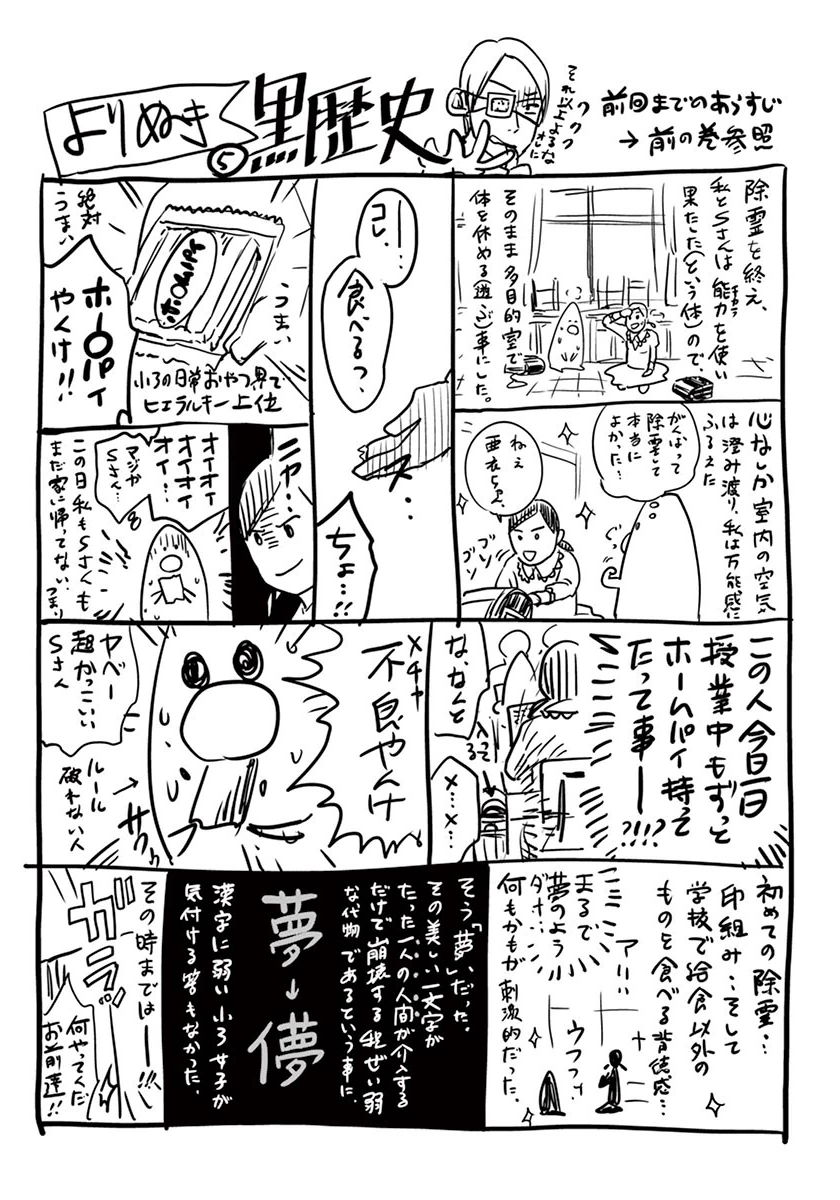 よりぬき
黒歴史
⑤
それ以上よるな
オレに
フクク
前回までのあらすじ
→前の巻参照
除霊を終え、
私とSさんは能力を使い
チカラ
果たした(という体)ので、
そのまま多目的室で
体を休める(遊ぶ)事にした。
心なしか室内の空気
は澄み渡り、私は万能感に
ふるえた
がんばって
除霊して
本当に
よかった…
ぐっ
ねぇ
亜衣ちゃん
ゴソ
ゴソ
コレ…
食べるっ、
ス…
ちょ…!!
絶対
うまい
うまい
ホー〇パイ
やんけ!!
小3の日常おやつ界で
ヒエラルキー上位
ニヤ…
オイオイ
オイオイ
オイ…
マジか
Sさん…
この日私もSさんも
まだ家に帰ってない…
つまり
この人今日一日
授業中もずっと
ホームパイ持って
たって事ー!?!!?
な、なんと
入ってる
メ…メ…
メチャ
不良やんけ
ヤベー
超かっこいい
Sさん
ルール
破れない人
→
サクッ
初めての除霊…
印組み…そして
学校で給食以外の
ものを食べる背徳感…
アハハ
まるで
夢のよう
ダナ…
何もかもが刺激的だった。
ウフフッ
そう「夢」だった。
その美しい一文字が
たった一人の人間が介入する
だけで崩壊する程ぜい弱
な代物であるという事に、
夢→儚
漢字に弱い小3女子が
気付ける筈もなかった。
その時までは──!!!
ガラッ
何やってんだ
お前達!!